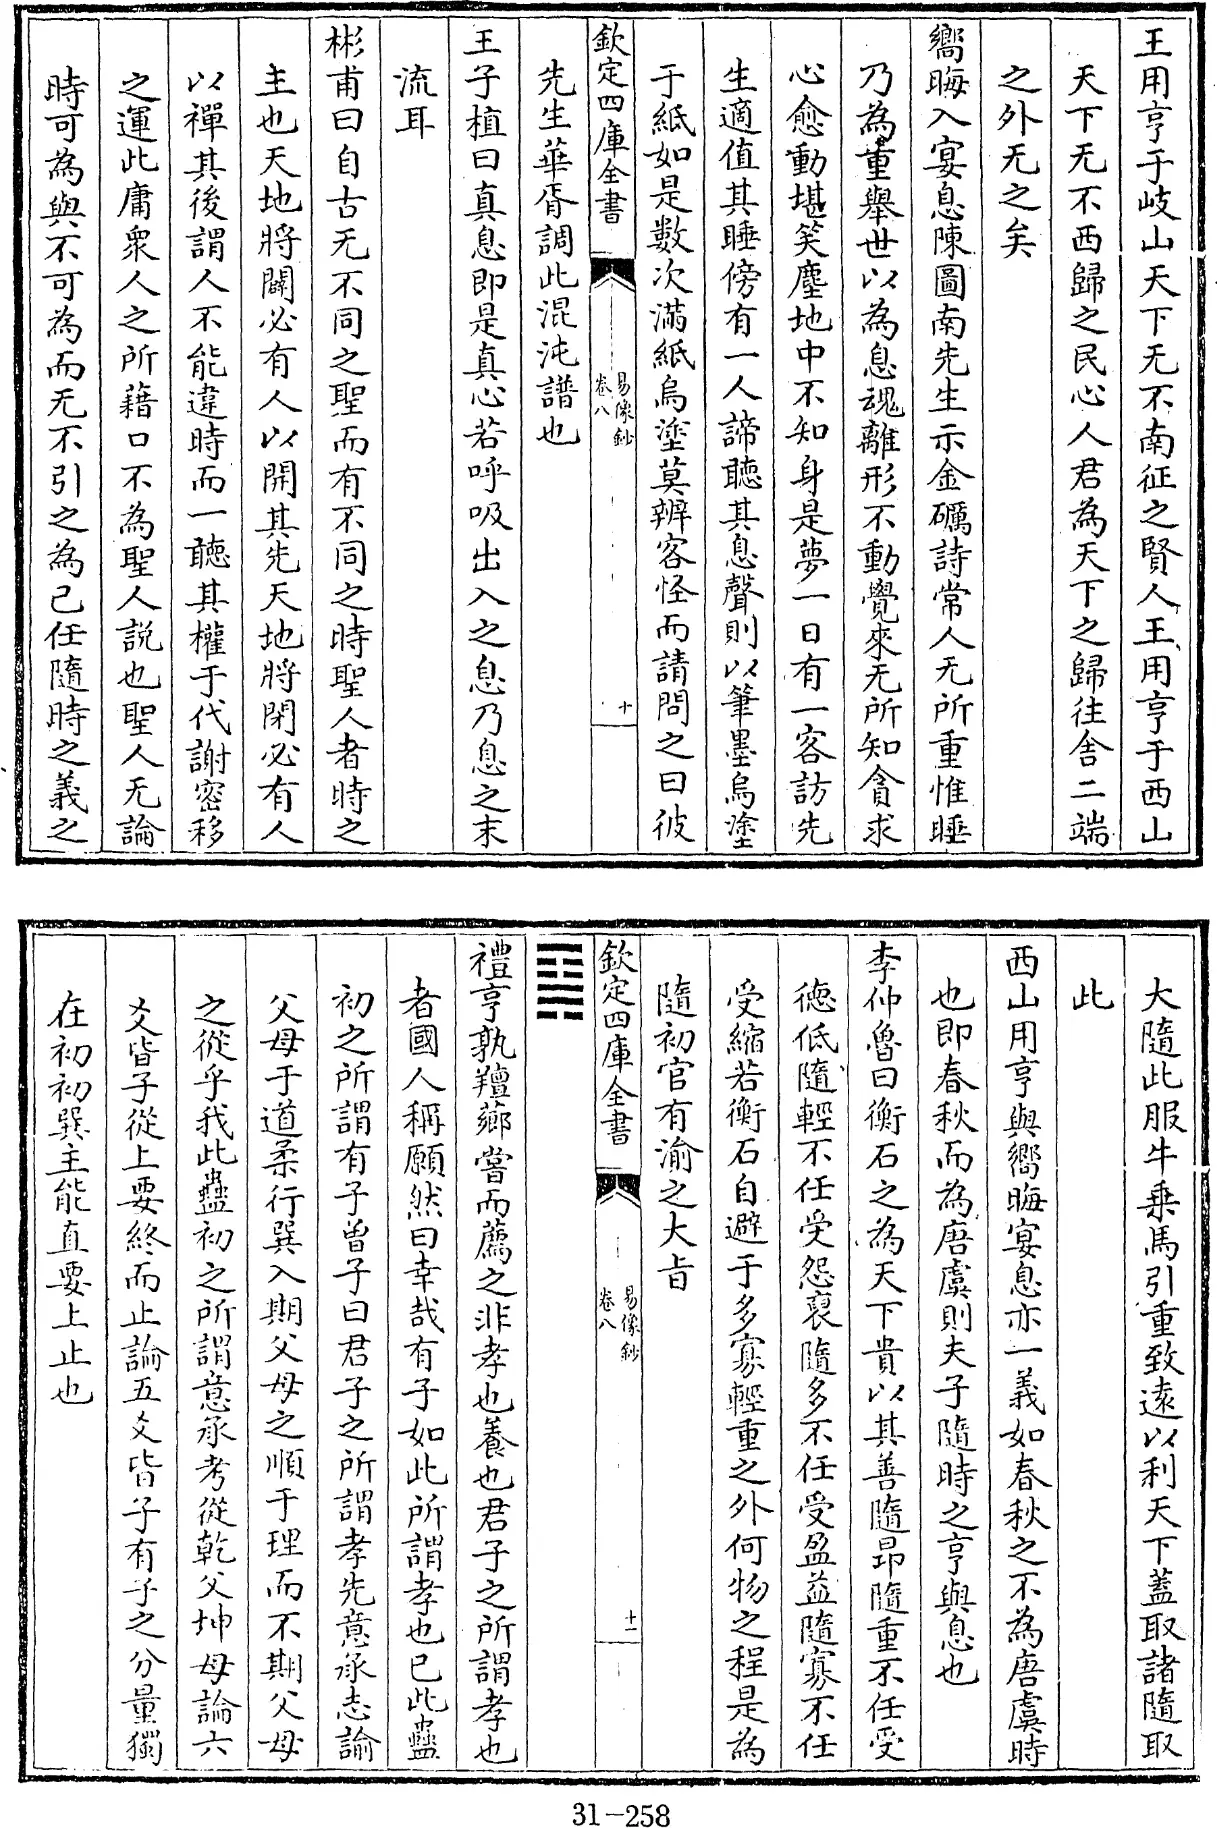 王用亨于岐山天下无不南征之賢人王用亨于西山
天下无不西歸之民心人君為天下之歸往舎二端
之外无之矣
嚮晦入宴息陳圖南先生示金礪詩常人无所重惟睡
乃為重舉世以為息魂離形不動覺來无所知貪求
心愈動堪笑塵地中不知身是夢一日有一客訪先
生適值其睡傍有一人諦聽其息聲則以筆墨烏塗
于紙如是數次滿紙烏塗莫辨客怪而請問之曰彼
欽定四庫全書
易像鈔
卷八
十
先生華胥調此混沌譜也
王子植曰真息即是真心若呼吸出入之息乃息之末
流耳
彬甫曰自古无不同之聖而有不同之時聖人者時之
主也天地將闢必有人以開其先天地將閉必有人
以禪其後謂人不能違時而一聽其權于代謝密移
之運此庸衆人之所藉口不為聖人説也聖人无論
時可為與不可為而无不引之為己任隨時之義之
大隨此服牛乗馬引重致遠以利天下蓋取諸隨取
此
西山用亨與嚮晦宴息亦一義如春秋之不為唐虞時
也即春秋而為唐虞則夫子隨時之亨與息也
李仲魯曰衡石之為天下貴以其善隨昻隨重不任受
徳低隨輕不任受怨裒隨多不任受盈益隨寡不任
受縮若衡石自避于多寡輕重之外何物之程是為
隨初官有渝之大旨
欽定四庫全書
易像鈔
卷八
十一
䷑
禮亨孰羶薌嘗而薦之非孝也養也君子之所謂孝也
者國人稱願然曰幸哉有子如此所謂孝也已此蠱
初之所謂有子曽子曰君子之所謂孝先意承志論
父母于道柔行巽入期父母之順于理而不期父母
之從乎我此蠱初之所謂意承考從乾父坤母論六
爻皆子從上要終而止論五爻皆子有子之分量獨
在初初巽主能直要上止也
31-258